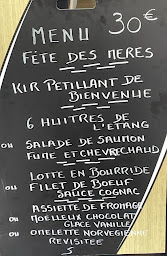 MENU 30€
FÊTE DES MERES
KIR PETILLANT DE
BIENVENUE
6 HUITRES DE
L'ETANG
OU SALADE DE SAUMON
FUME ET CHEVRE CHAUD
LOTTE EN BOURRIDE
OU FILET DE BOEUF
SAUCE COGNAC
ASSIETTE DE FROMAGE
OU MOELLEUX CHOCOLAT
GLACE VANILLE
OU OMELETTE NORVEGIENNE
REVISITEE